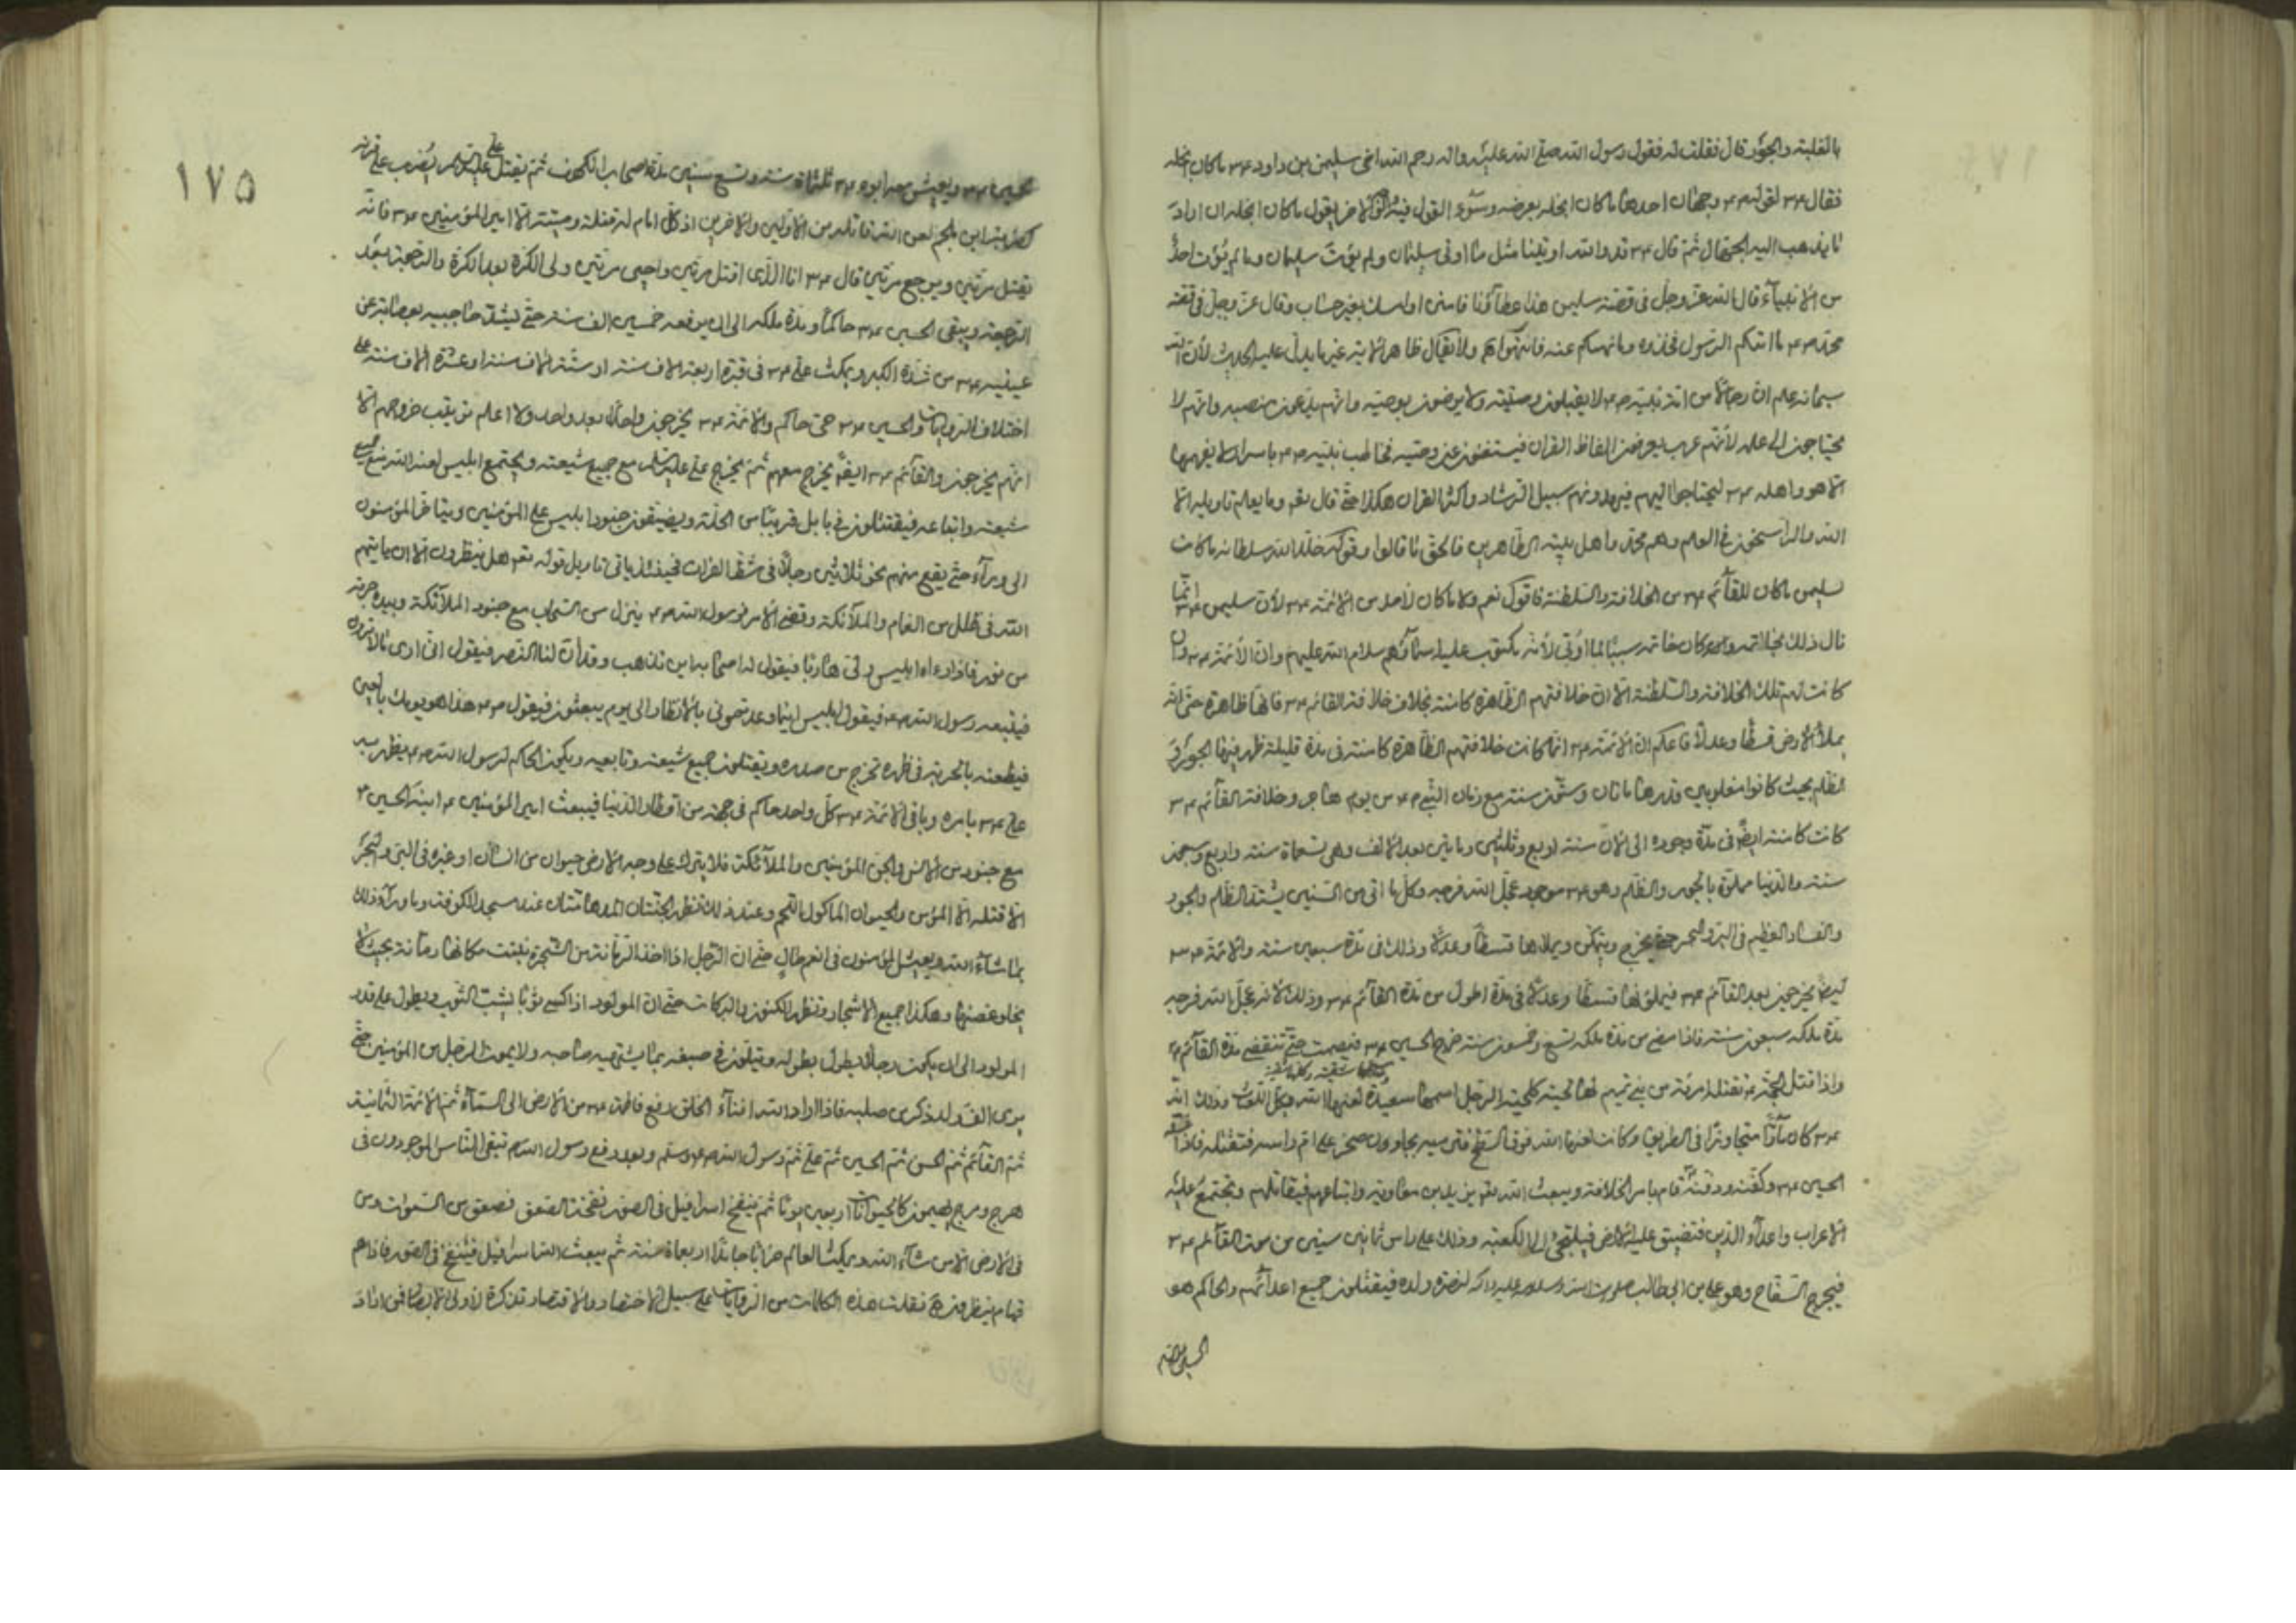 بالغلبة والجور قال فقلت له فقول رسول الله صلى الله عليه وآله رحم الله اخى سليمن بن داود ع م ما كان ابخله
فقال ع م لقوله ص م وجهان احدهما ما كان ابخله بعرضه وسوء القول فيه والوجه الاخر يقول ما كان ابخله ان اراد
ما يذهب اليه الجهال ثم قال ع م قد والله اوتينا مثل ما اوتى سليمان ولم يؤت سليمان وما لم يؤت احدٌ
من الانبيآء قال الله عز وجل فى قصة سليمن هذا عطآؤنا فامنن او امسك بغير حساب وقال عز وجل فى قصة
محمد ص م ما اتيكم الرسول فخذوه وما نهيكم عنه فانتهوا ولا يقال ظاهر الاية غير ما يدل عليه الحديث لأن الله
سبحانه علم ان رجالاً من امة نبيه ص م لا يقبلون وصيته ولا يرضون بوصيه وانهم يدعون منصبه وانهم لا
يحتاجون الى علمه لأنهم عرب يعرفون الفاظ القران فيستغنون عن وصيه فخاطب نبيه ص م باسرار لا يفهمها
الا هو واهله ع م ليحتاجوا اليهم فيرشدونهم سبيل الرشاد واكثر القران هكذا حتى قال تعـ وما يعلم تاويله الا
الله والراسخون فى العلم وهم محمد واهل بيته الطاهرين فالحق ما قالوا وقولكم خلد الله سلطانه ما كانت
لسليمن ما كان للقآئم ع م من الخلافة والسلطنة فاقول نعم ولا ما كان لأحد من الائمة ع م لأن سليمن ع م انما
نال ذلك بخاتمه وانما كان خاتمه سببًا لما اوتى لأنه مكتوب عليه اسمآؤهم سلام الله عليهم وان الأئمة ع م وان
كانت لهم تلك الخلافة والسلطنة الا ان خلافتهم الظاهرة كامنة بخلاف خلافة القائم ع م فانها ظاهرة حتى انه
يملأ الارض قسطًا وعدلاً فاعلم ان الائمة ع م انما كانت خلافتهم الظاهرة كامنة فى مدة قليلة ظهر فيها الجور و
الظلم بحيث كانوا مغلوبين وقدرها مائتان وستون سنة مع زمان النبى ص م من يوم هاجر وخلافة القآئم ع م
كانت كامنة ايضًا فى مدة وجوده الى الان سنة اربع وثلثين ومايتين بعد الالف وهى تسعماة سنة واربع وسبعون
سنة والدنيا مملوة بالجور والظلم وهو ع م موجود عجل الله فرجه وكل ما اتى من السنين يشتد الظلم والجور
والفساد العظيم فى البر والبحر حتى يخرج ويتمكن ويملاها قسطًا وعدلاً وذلك فى مدة سبعين سنة والائمة ع م
ايضًا يخرجون بعد القآئم ع م فيملئونها قسطًا وعدلاً فى مدة اطول من مدة القآئم ع م وذلك لأنه عجل الله فرجه
مدة ملكه سبعون سنة فاذا مضى من مدة ملكه تسع وخمسون سنة خرج الحسين ع م فيصمت حتى تنقضى مدة القآئم ع م
واذا قتل الحجة ع م تقتله امرئة من بنى تميم لها لحية كلحية الرجل اسمها سعيدة لعنها الله وذلك انه
ع م كان مآرًّا متجاوزًا فى الطريق وكانت لعنها الله فوق السطح فترميه بجاون صخر على ام راسه فتقتله فاذا
الحسين ع م وكفنه ودفنه قام بامر الخلافة ويبعث الله تعـ يزيد بن معاوية واتباعهم فيقاتلهم وتجتمع عليه
الاعراب واعدآء الدين فتضيق عليه الارض فيلتجئ الى الكعبة وذلك على راس ثمانين سنين من موت القآئم ع م
فيخرج السفاح وهو على بن ابى طالب صلوات الله وسلامه عليه وآله لنصرة ولده فيقتلون جميع اعدآئهم والحاكم هو
الحسين
١٧٥
الحسين ع م ويعيش معه ابوه ع م ثلثماة سنة وتسع سنين مدة اصحاب الكهف ثم يقتل على عليه السلام يضرب على قرنه
كضربة ابن ملجم لعن الله قاتله من الاولين والاخرين اذ كل امام له قتلة وميتة الا امير المؤمنين ع م فانه
يقتل مرتين ويرجع مرتين قال ع م انا الذى اقتل مرتين واحيى مرتين ولى الكرة بعد الكرة والرجعة بعد
الرجعة ويبقى الحسين ع م حاكمًا ومدة ملكه الى ان يرفعه خمسين الف سنة حتى ليشد حاجبيه بعصابة عن
عينيه ع م من شدة الكبر ويمكث على ع م فى قبره اربعة الاف سنة او ستة الاف سنة او عشرة الاف سنة على
اختلاف الروايات والحسين ع م حى حاكم والائمة ع م يخرجون واحدًا بعد واحد ولا اعلم ترتيب خروجهم الا
انهم يخرجون والقآئم ع م ايضًا يخرج معهم ثم يخرج على عليه السلم مع جميع شيعته ويجتمع ابليس لعنه الله مع جميع
شيعته واتباعه فيقتتلون فى بابل قريبًا من الحلة ويضيقون جنود ابليس على المؤمنين ويتاخر المؤمنون
الى ورآء حتى يقع منهم نحو ثلاثين رجلاً فى شط الفرات فحينئذ ياتى تاويل قوله تعـ هل ينظرون الا ان ياتيهم
الله فى ظلل من الغمام والملآئكة وقضى الامر فرسول الله ص م ينزل من السحاب مع جنود الملآئكة وبيده حربة
من نور فاذا رءاه ابليس ولى هاربًا فيقول له اصحابه اين تذهب وقد آن لنا النصر فيقول انى ارى ما لا ترون
فيتبعه رسول الله ص م فيقول ابليس انما وعدتمونى بالانظار الى يوم يبعثون فيقول ص م هذا هو يومك يا لعين
فيطعنه بالحربة فى ظهره تخرج من صدره ويقتلون جميع شيعته وتابعيه ويكون الحاكم لرسول الله ص م يظهر بيد
على ع م بامره وباقى الائمة ع م كل واحد حاكم فى جهة من اقطار الدنيا فيبعث امير المؤمنين ع م ابنه الحسين ع
مع جنود من الانس والجن المؤمنين والملآئكة فلا يترك على وجه الارض حيوان من انسان او غيره فى البر والبحر
الا قتله الا المؤمن والحيوان الماكول اللحم وعند ذلك تظهر الجنتان المدهامتان عند مسجد الكوفة وما ورآء ذلك
بما شآء الله ويعيش المؤمنون فى انعم حال حتى ان الرجل اذا اخذ الرمانة من الشجرة نبتت مكانها رمانة بحيث لا
يخلو غصنها وهكذا جميع الاشجار وتظهر الكنوز والبركات حتى ان المولود اذا كسى ثوبًا يشب الثوب ويطول على قدر
المولود الى ان يكون رجلاً يطول بطوله ويتلون فى صبغه بما يشتهيه صاحبه ولا يموت الرجل من المؤمنين حتى
يرى الف ولد ذكر من صلبه فاذا اراد الله افنآء الخلق رفع فاطمة ع م من الارض الى السمآء ثم الائمة الثمانية
ثم القآئم ثم الحسن ثم الحسين ثم على ثم رسول الله ص م وسلم وبعد رفع رسول الله ص م تبقى الناس الموجودون فى
هرج ومرج يهيمون كالحيوانات اربعين يومًا ثم ينفخ اسرافيل فى الصور نفخة الصعق فصعق من السموات ومن
فى الارض الا من شآء الله ويمكث العالم خرابًا جامدًا اربعماة سنة ثم يبعث الله اسرافيل فينفخ فى الصور فاذا هم
قيام ينظرون نقلت هذه الكلمات من الروايات على سبيل الاختصار والاقتصار تذكرة لأولى الابصار فمن اراد